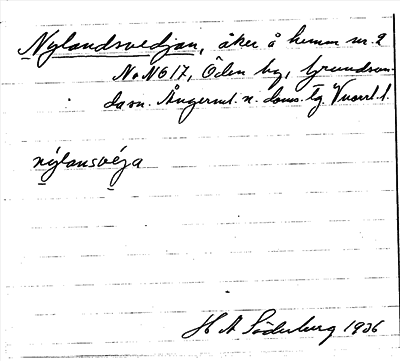 Nylandsvedjan, åker å hemm nr. 2
No NG 17, Öden by, Grundsun-
da sn. Ångerml. n. doms. Tg.
nýlansvéja
H A Söderberg 1936